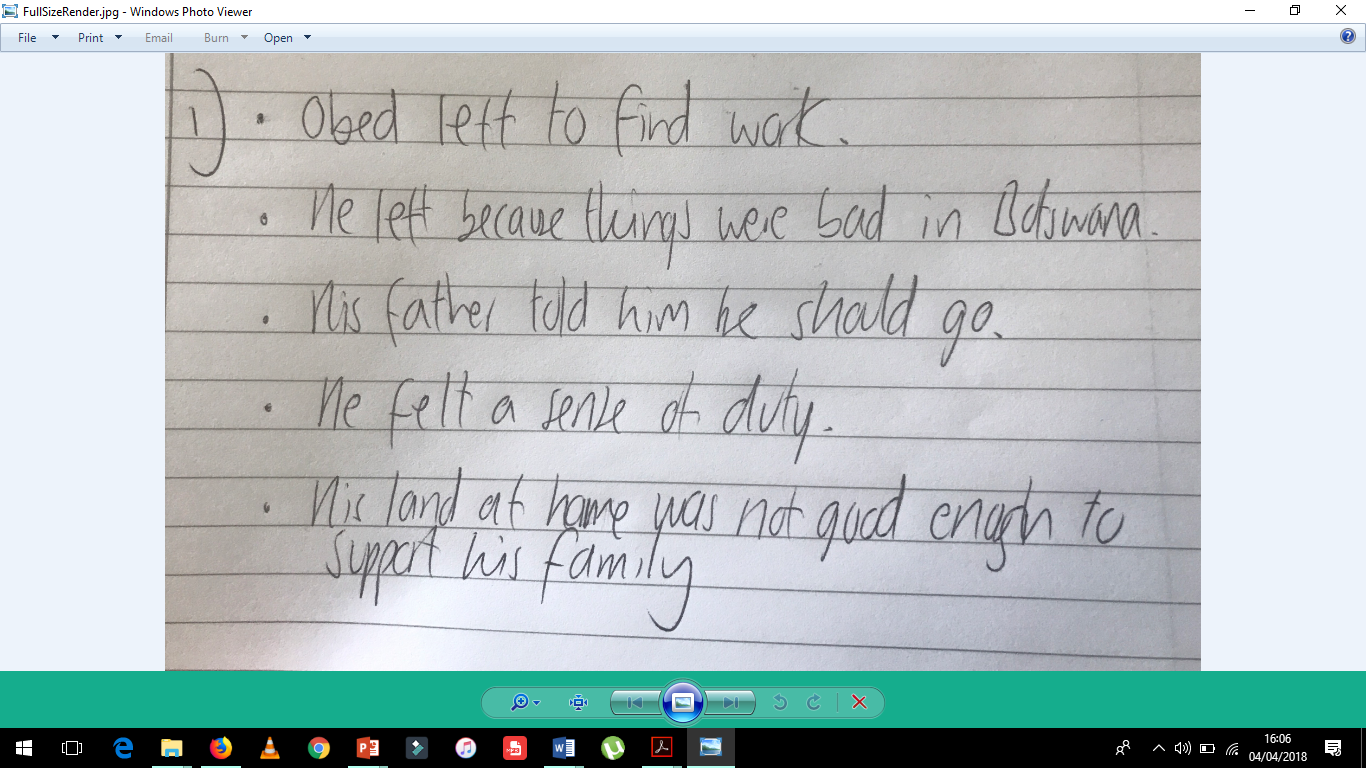 FullSizeRender.jpg - Windows Photo Viewer
File Print Email Burn Open
1) • Obed left to find work.
• He left because things were bad in Botswana.
• His father told him he should go.
• He felt a sense of duty.
• His land at home was not good enough to
support his family
16:06
04/04/2018